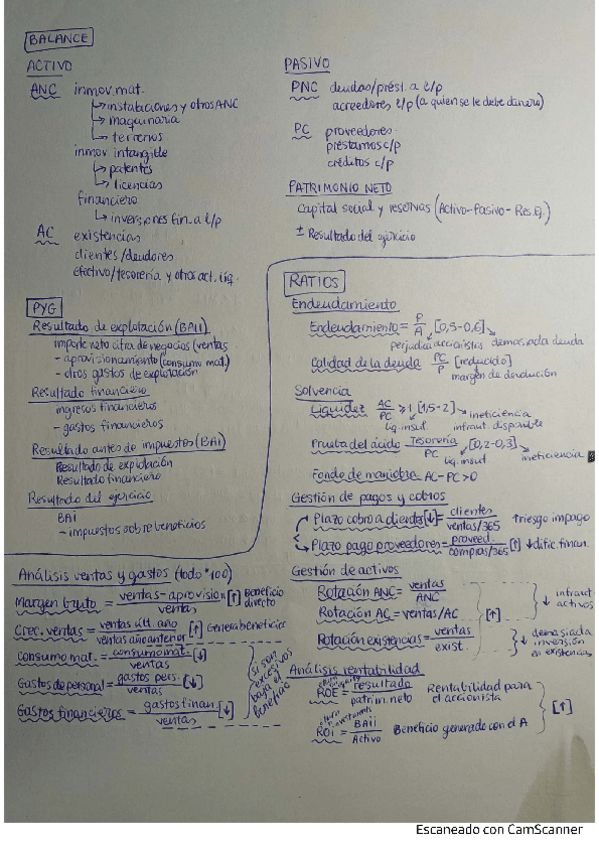 BALANCE
ACTIVO
ANC inmov. mat.
instalaciones y otros ANC
maquinaria
terrenos
inmov. intangible
patentes
licencias
financiero
inversiones fin. a l/p
AC existencias
clientes/deudores
efectivo/tesorería y otros act. líq.
PASIVO
PNC deudas/prést. a l/p
acreedores l/p (a quien se le debe dinero)
PC proveedores
préstamos c/p
créditos c/p
PATRIMONIO NETO
Capital social y reservas (Activo-Pasivo-Res.Ej.)
± Resultado del ejercicio
PYG
Resultado de explotación (BAii)
importe neto cifra de negocios (ventas
- aprovisionamiento (consumo mat.)
- otros gastos de explotación
Resultado financiero
ingresos financieros
- gastos financieros
Resultado antes de impuestos (BAi)
Resultado de explotación
Resultado financiero
Resultado del ejercicio
BAi
- impuestos sobre beneficios
RATIOS
Endeudamiento
Endeudamiento = P/A [0,5-0,6]
perjudica accionistas demasiada deuda
Calidad de la deuda PC/P [reducido]
margen de devolución
Solvencia
Liquidez AC/PC ≥1 [1,5-2] ineficiencia
liq. insuf. infraut. disponible
Prueba del ácido Tesorería/PC [0,2-0,3]
liq. insuf. ineficiencia
Fondo de maniobra AC-PC>0
Gestión de pagos y cobros
Plazo cobro a clientes [↓] = clientes/ventas/365 ↑riesgo impago
Plazo pago proveedores = proveed./compras/365 [↑] ↓dific. finan.
Gestión de activos
Rotación ANC = ventas/ANC
Rotación AC = ventas/AC [↑] ↓ infraut. activos
Rotación existencias = ventas/exist. ↓ demasiada inversión en existencias
Análisis rentabilidad
ROE = resultado/patrim. neto Rentabilidad para el accionista
ROi = BAii/Activo Beneficio generado con el A [↑]
Análisis ventas y gastos (todo*100)
Margen bruto = ventas-aprovision/ventas [↑] Beneficio directo
Crec. ventas = ventas últ. año/ventas año anterior [↑] Genera beneficios
Consumo mat. = consumo mat./ventas [↓]
Gastos de personal = gastos pers./ventas [↓]
Gastos financieros = gastos finan./ventas [↓]
si son excesivos baja el beneficio
Escaneado con CamScanner